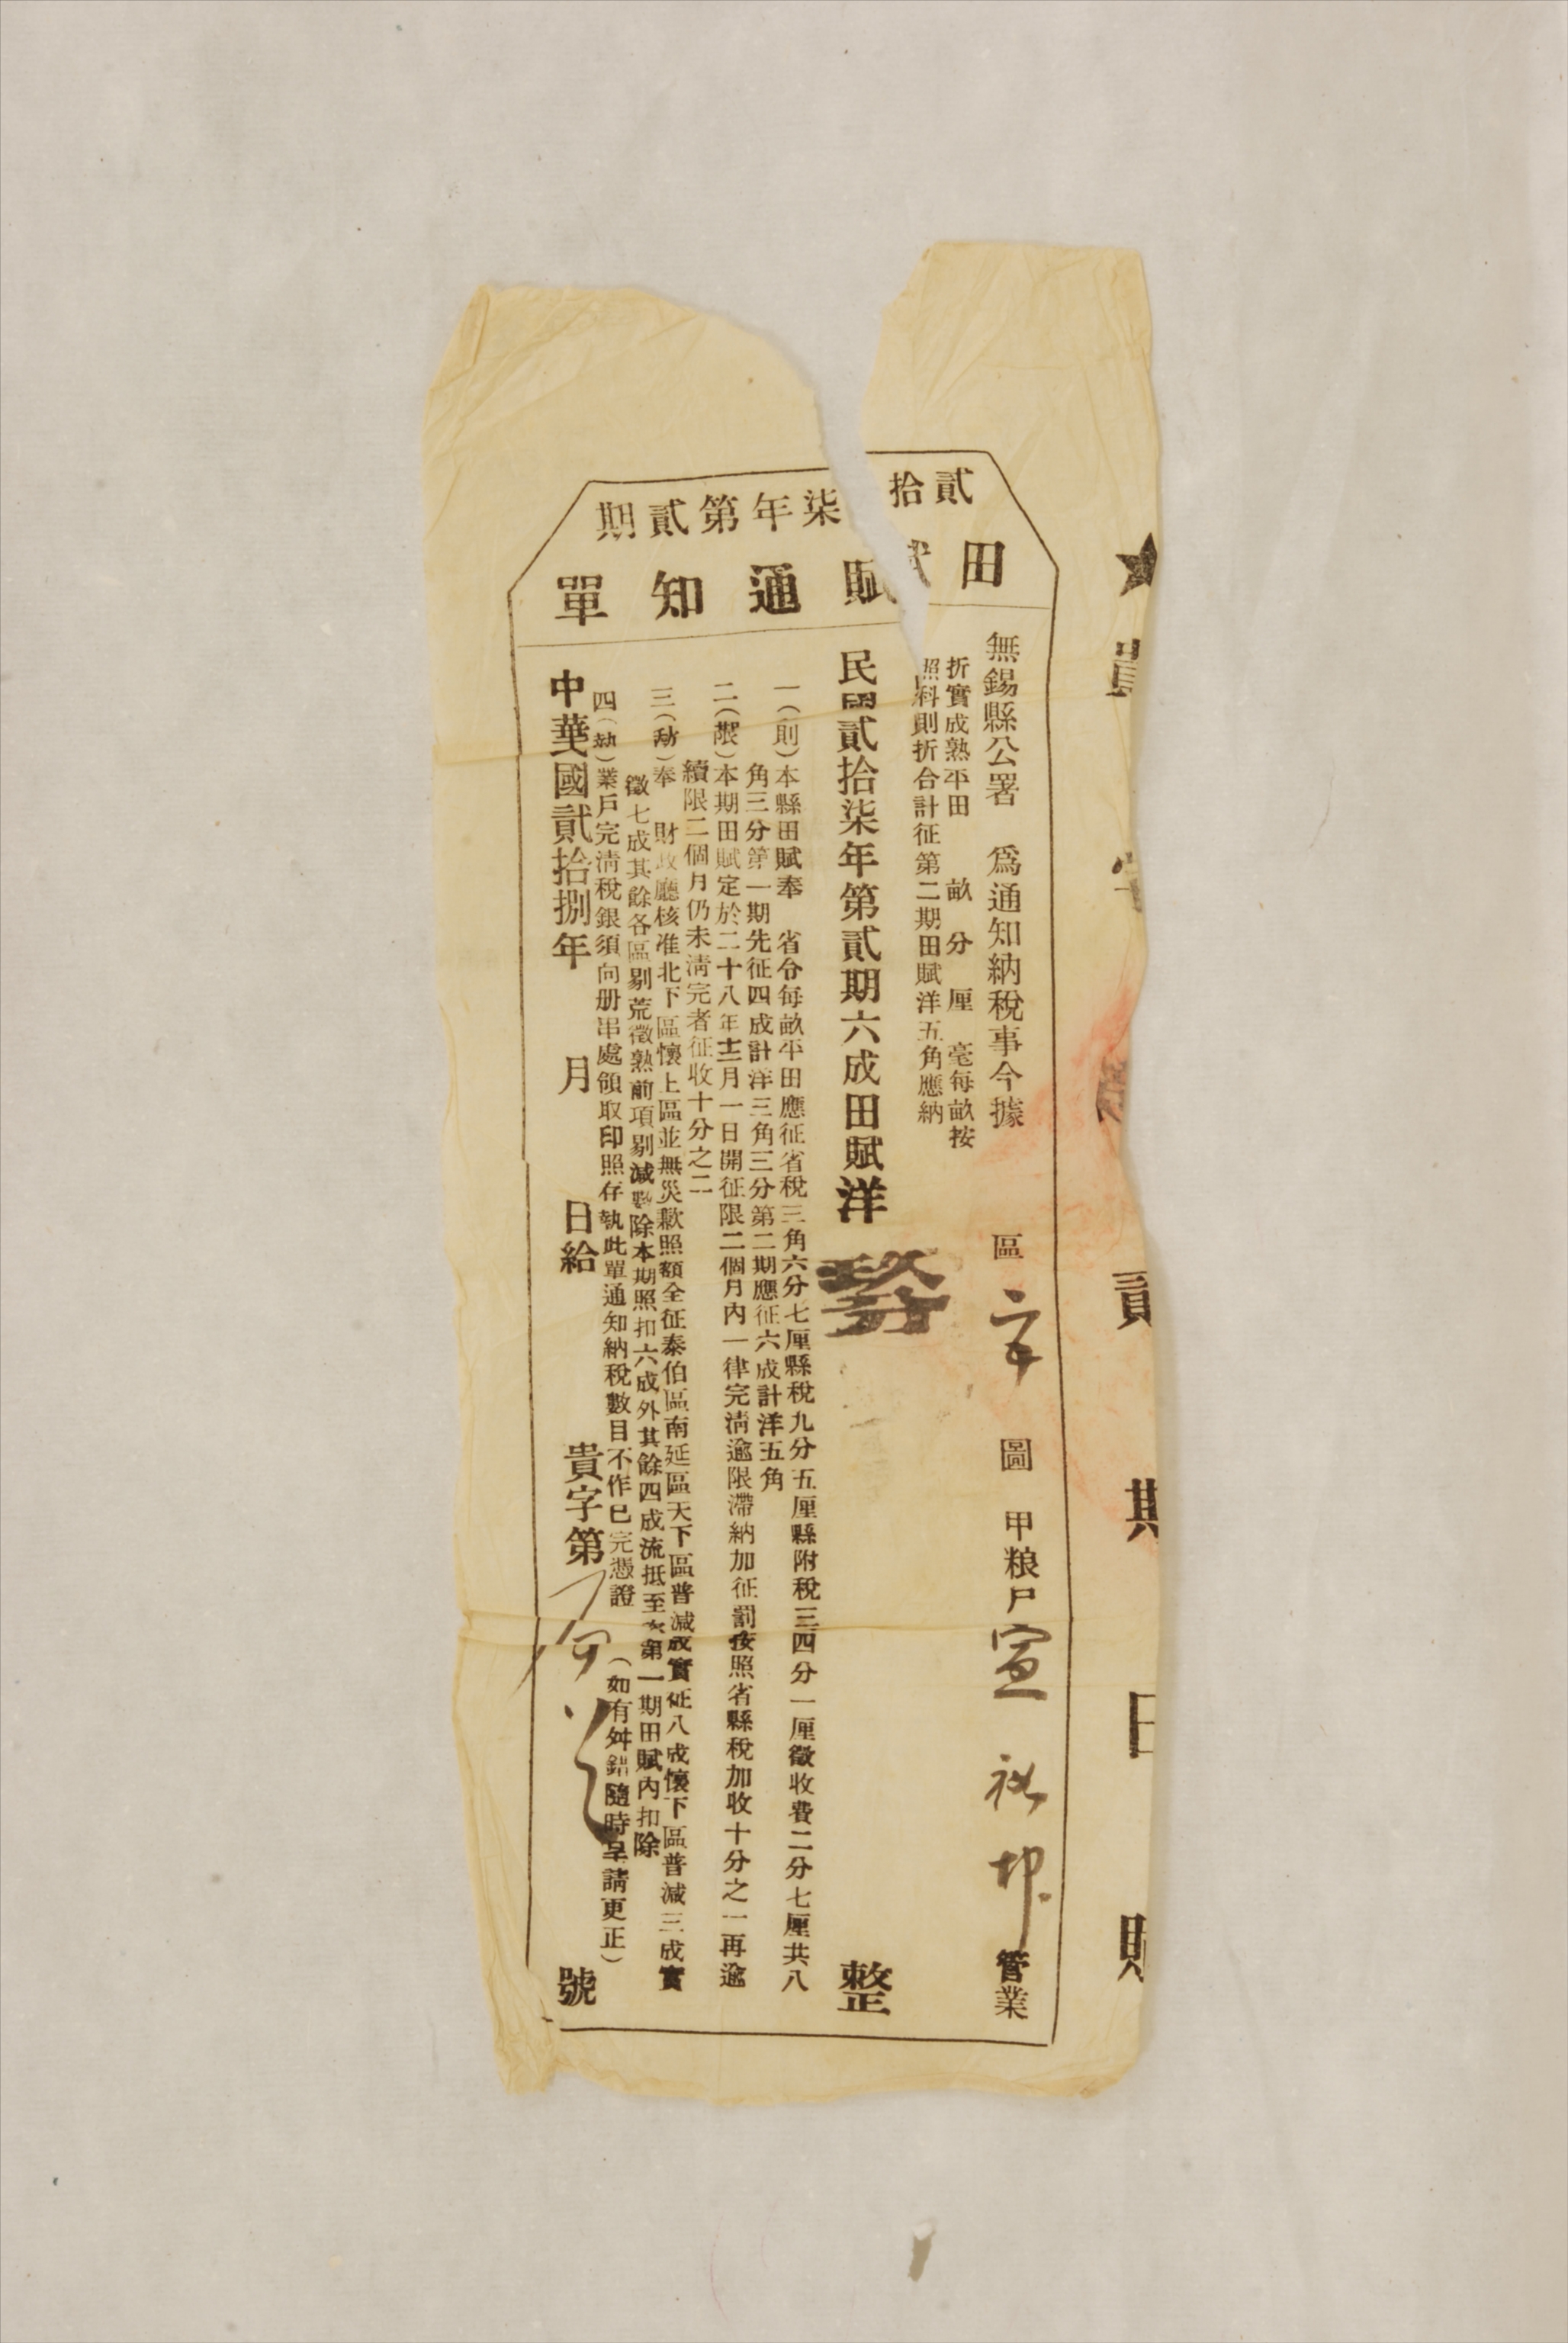 貳拾柒年第貳期
田賦通知單
無錫縣公署 爲通知納稅事今據 區 字 圖 甲粮戶宣 管業
折實成熟平田 畝 分 厘 毫每畝按
照科則折合計征第二期田賦洋五角應納
民國貳拾柒年第貳期六成田賦洋 整
一(則)本縣田賦奉 省令每畝平田應征省稅三角六分七厘縣稅九分五厘縣附稅三四分一厘徵收費二分七厘共八
角三分第一期先征四成計洋三角三分第二期應征六成計洋五角
二(限)本期田賦定於二十八年十二月一日開征限二個月內一律完淸逾限滯納加征罰按照省縣稅加收十分之一再逾
續限二個月仍未淸完者征收十分之二
三( )奉 財政廳核准北下區懷上區並無災歉照額全征泰伯區南延區天下區普減 成實征八成懷下區普減三成實
徵七成其餘各區剔荒徵熟前項剔減 除本期照扣六成外其餘四成流抵至 第一期田賦內扣除
四(執)業戶完淸稅銀須向册串處領取印照存執此單通知納稅數目不作已完憑證 (如有舛錯隨時呈請更正)
中華民國貳拾捌年 月 日給 貴字第 號
貳 期 田 賦